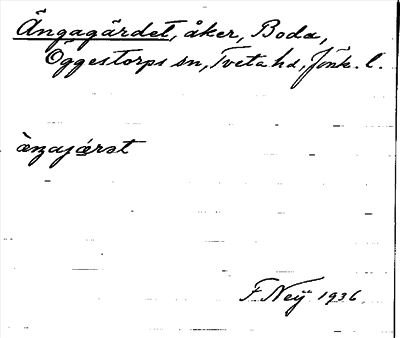 Ängagärdet, åker, Boda,
Öggestorps sn, Tveta hd, Jönk. l.
ànzajǽrət
F. Neij 1936.